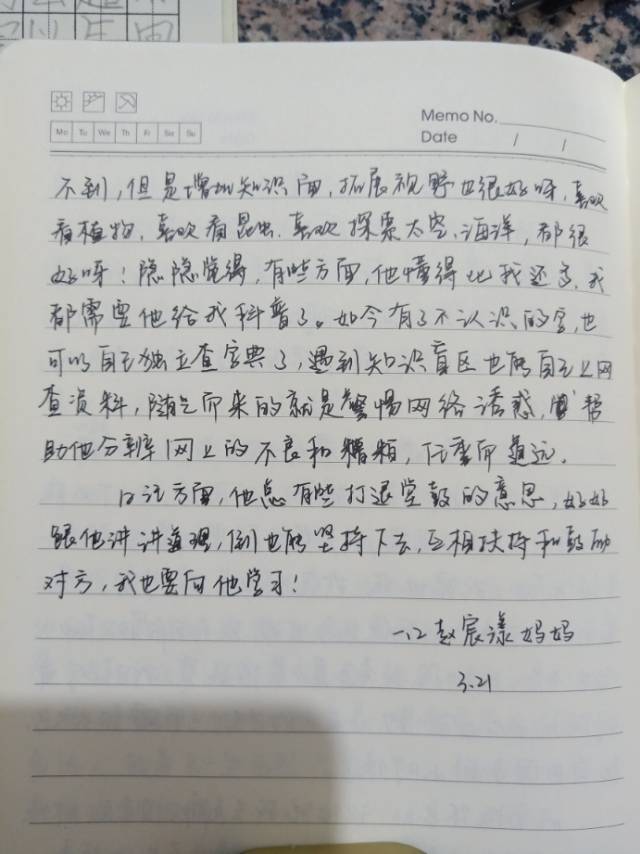 Memo No.
Mo Tu We Th Fr Sa Su
Date / /
不到,但是增加知识面,拓展视野也很好呀,喜欢
看植物、喜欢看昆虫、喜欢探索太空、海洋,都很
好呀!隐隐觉得,有些方面,他懂得比我还多,我
都需要他给我科普了。如今有了不认识的字,也
可以自己独立查字典了,遇到知识盲区也能自己上网
查资料,随之而来的就是警惕网络诱惑,帮
助他分辨网上的不良和糟粕,任重而道远。
日记方面,他总有些打退堂鼓的意思,好好
跟他讲讲道理,倒也能坚持下去,互相扶持和鼓励
对方,我也要向他学习!
一.2 赵宸漾妈妈
3.21